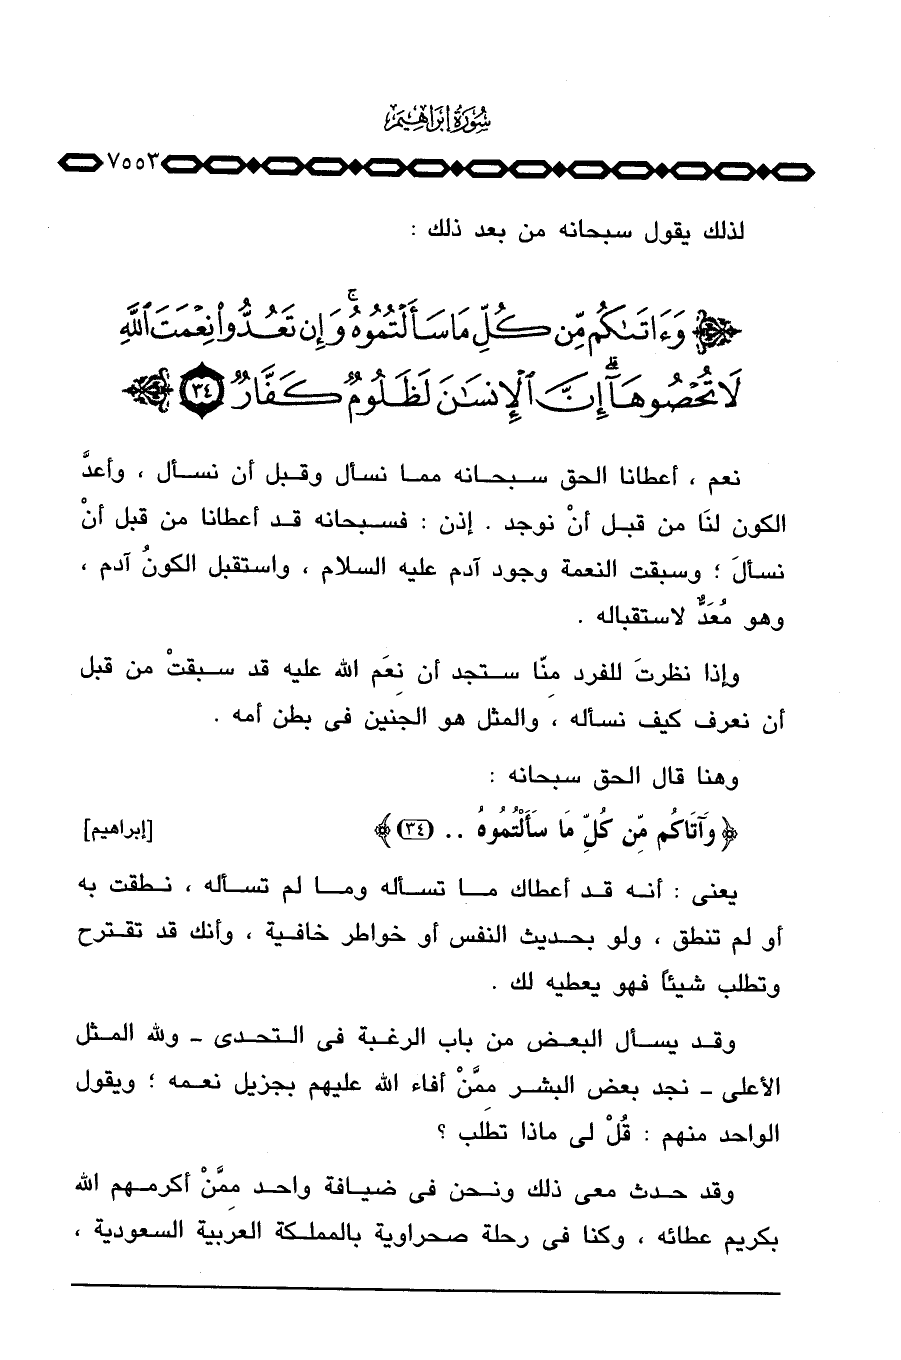 سُورَةُ إِبْرَاهِيمَ
٧٥٥٣
لذلك يقول سبحانه من بعد ذلك :
﴿ وَءَاتَىٰكُم مِّن كُلِّ مَا سَأَلْتُمُوهُ ۚ وَإِن تَعُدُّوا۟ نِعْمَتَ ٱللَّهِ
لَا تُحْصُوهَآ ۗ إِنَّ ٱلْإِنسَـٰنَ لَظَلُومٌ كَفَّارٌ ٣٤ ﴾
نعم ، أعطانا الحق سبحانه مما نسأل وقبل أن نسأل ، وأعدَّ
الكون لنَا من قبل أنْ نوجد . إذن : فسبحانه قد أعطانا من قبل أنْ
نسألَ ؛ وسبقت النعمة وجود آدم عليه السلام ، واستقبل الكونُ آدم ،
وهو مُعَدٌّ لاستقباله .
وإذا نظرتَ للفرد مِنّا ستجد أن نِعَم الله عليه قد سبقتْ من قبل
أن نعرف كيف نسأله ، والمثل هو الجنين فى بطن أمه .
وهنا قال الحق سبحانه :
﴿ وَآتَاكُم مِّن كُلِّ مَا سَأَلْتُمُوهُ .. (٣٤) ﴾ [إبراهيم]
يعنى : أنه قد أعطاك ما تسأله وما لم تسأله ، نطقت به
أو لم تنطق ، ولو بحديث النفس أو خواطر خافية ، وأنك قد تقترح
وتطلب شيئاً فهو يعطيه لك .
وقد يسأل البعض من باب الرغبة فى التحدى ـ ولله المثل
الأعلى ـ نجد بعض البشر ممَّنْ أفاء الله عليهم بجزيل نعمه ؛ ويقول
الواحد منهم : قُلْ لِى ماذا تطلب ؟
وقد حدث معى ذلك ونحن فى ضيافة واحد مِمَّنْ أكرمهم الله
بكريم عطائه ، وكنا فى رحلة صحراوية بالمملكة العربية السعودية ،